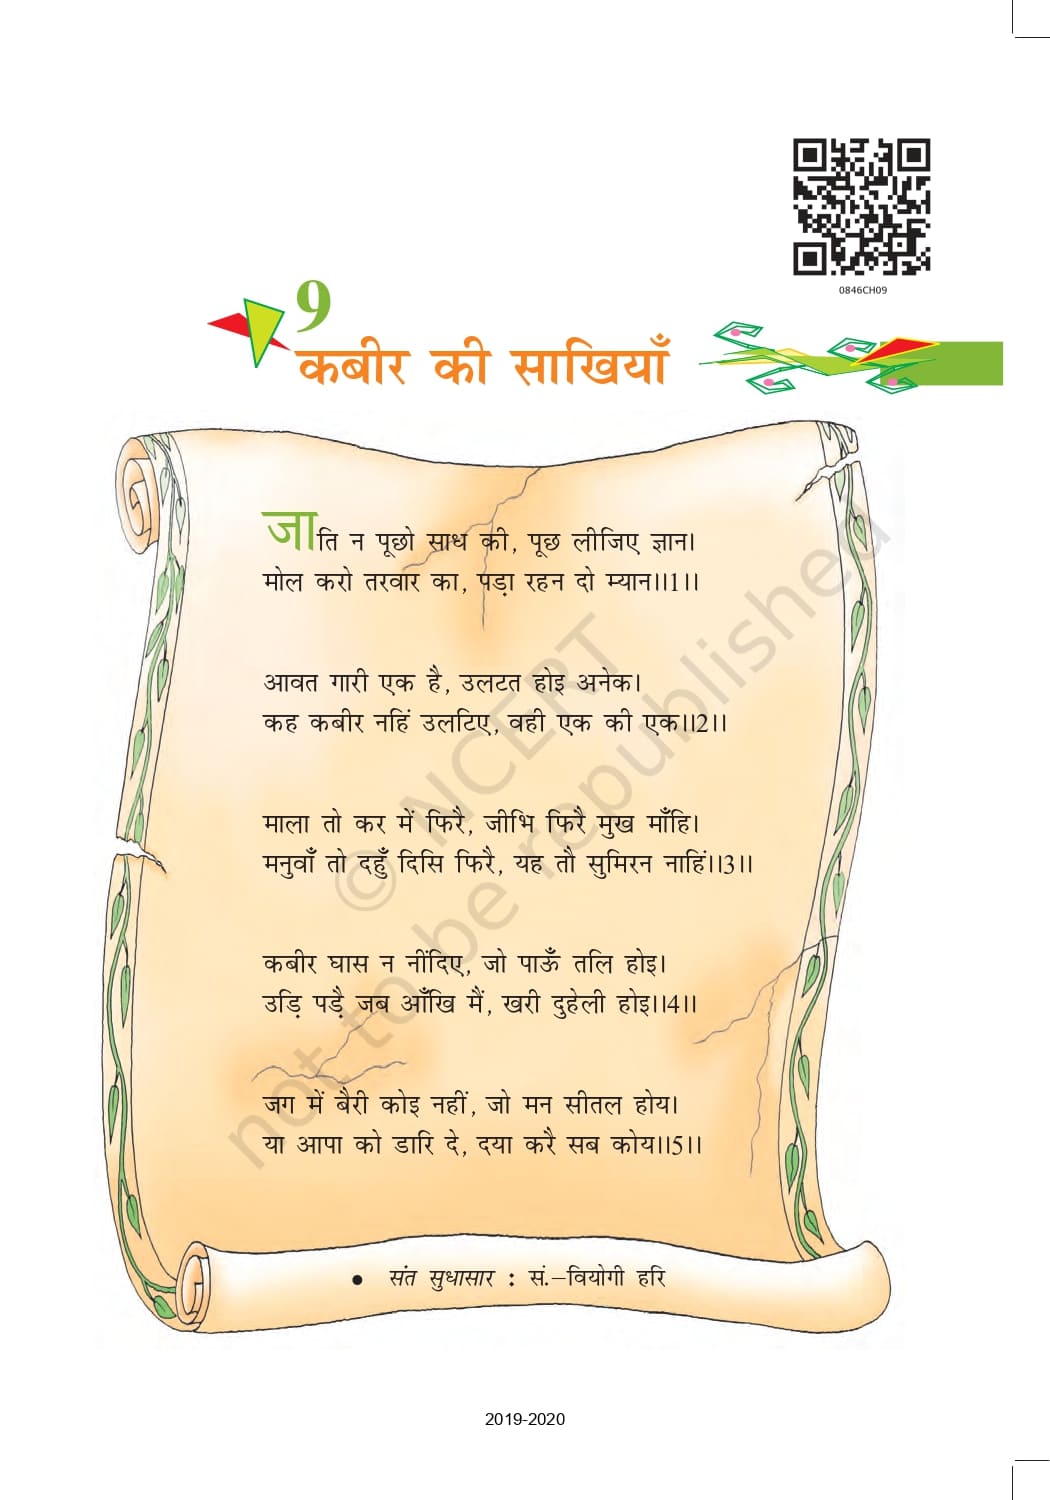 0846CH09
9
कबीर की साखियाँ
जाति न पूछो साध की, पूछ लीजिए ज्ञान।
मोल करो तरवार का, पड़ा रहन दो म्यान।।1।।
आवत गारी एक है, उलटत होइ अनेक।
कह कबीर नहिं उलटिए, वही एक की एक।।2।।
माला तो कर में फिरै, जीभि फिरै मुख माँहि।
मनुवाँ तो दहुँ दिसि फिरै, यह तौ सुमिरन नाहिं।।3।।
कबीर घास न नींदिए, जो पाऊँ तलि होइ।
उड़ि पड़ै जब आँखि मैं, खरी दुहेली होइ।।4।।
जग में बैरी कोइ नहीं, जो मन सीतल होय।
या आपा को डारि दे, दया करै सब कोय।।5।।
• संत सुधासार : सं.–वियोगी हरि
© NCERT
not to be republished
2019-2020